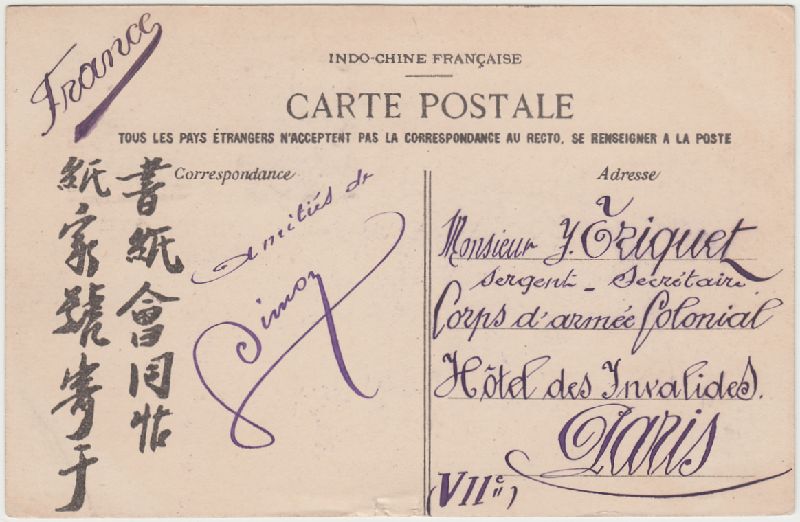 France
INDO-CHINE FRANÇAISE
CARTE POSTALE
TOUS LES PAYS ÉTRANGERS N'ACCEPTENT PAS LA CORRESPONDANCE AU RECTO. SE RENSEIGNER A LA POSTE
Correspondance
書紙會同帖
紙家號寄于
amitiés de
Simon
Adresse
à
Monsieur J. Triquet
Sergent - Secrétaire
Corps d'armée Colonial
Hôtel des Invalides.
Paris
(VIIe)